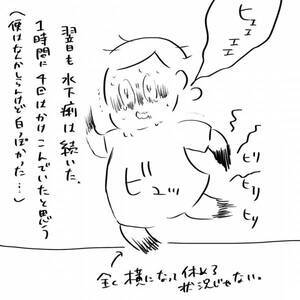 ヒュェェェ
翌日も水下痢は続いた。
1時間に4回はかけこんでいたと思う
(便はなんかしらんけど白っぽかった…)
ビュッ
ヒリ
ヒリ
ヒリ
全く横になって休める
状況じゃない。